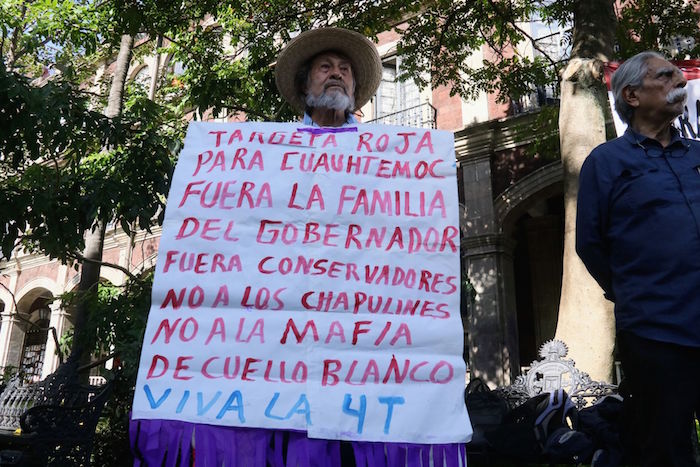 TARGETA ROJA
PARA CUAUHTEMOC
FUERA LA FAMILIA
DEL GOBERNADOR
FUERA CONSERVADORES
NO A LOS CHAPULINES
NO A LA MAFIA
DE CUELLO BLANCO
VIVA LA 4T